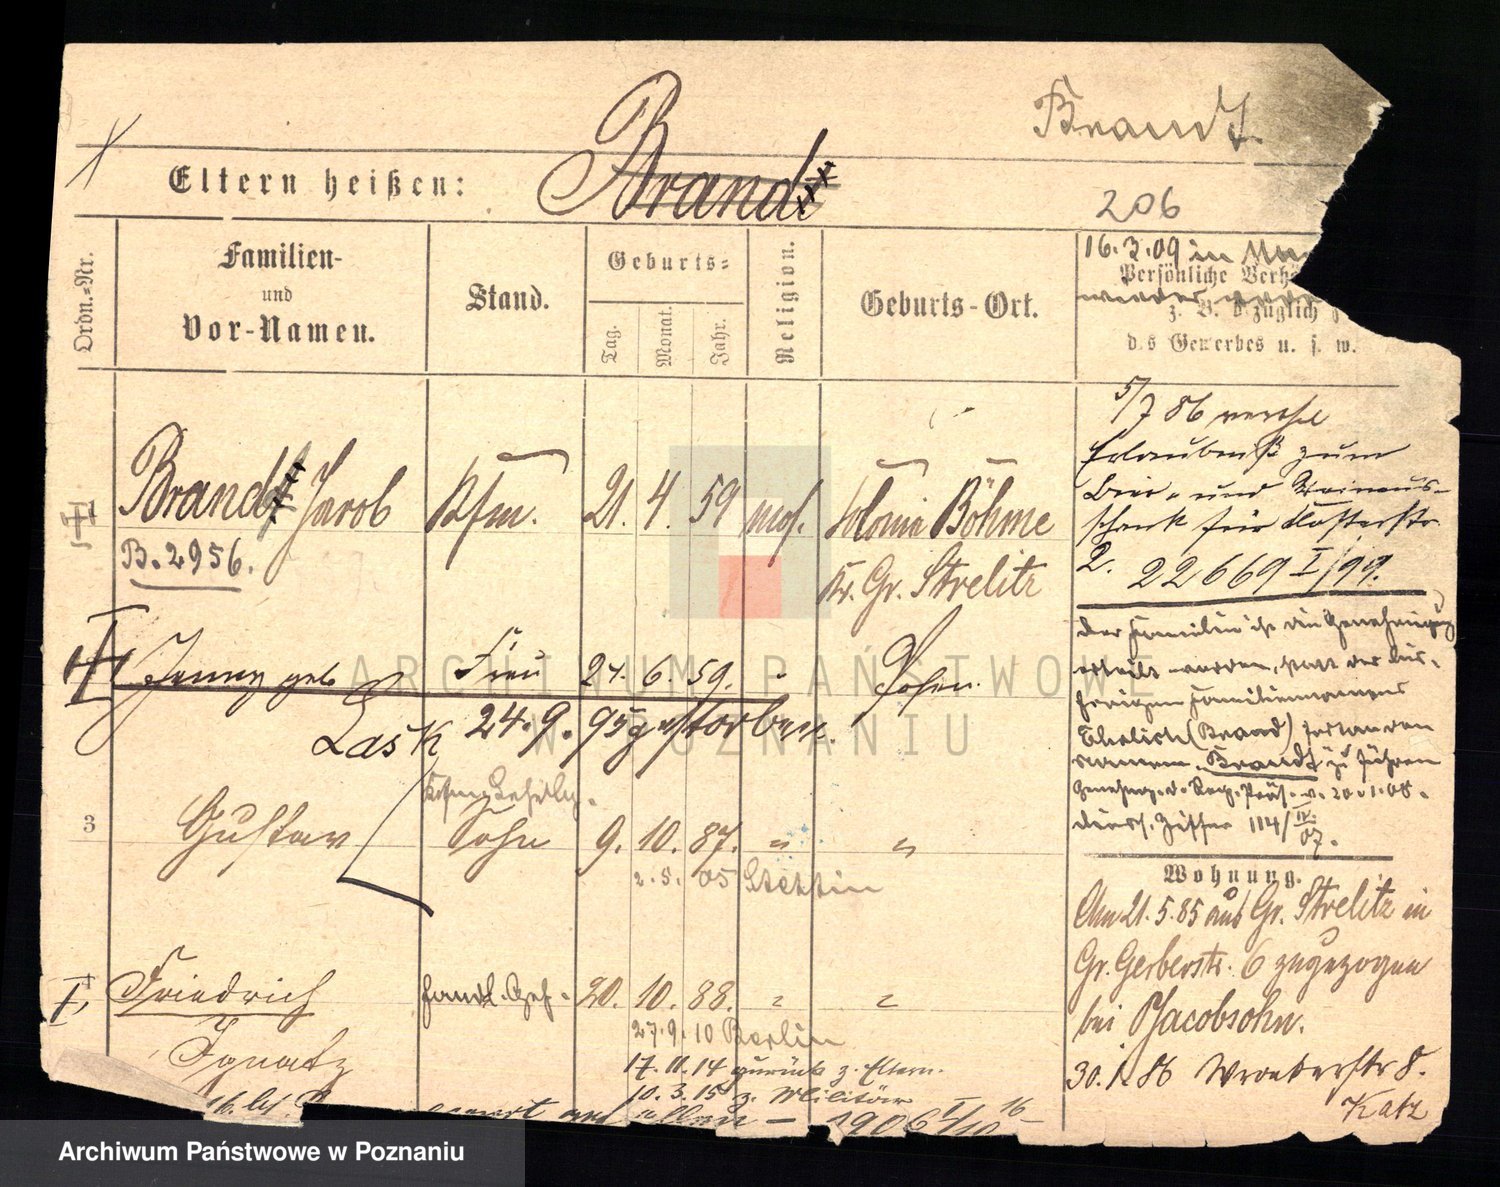 Brandt
Eltern heißen: Brand
206
Ordn.-Nr.
Familien-
und
Vor-Namen.
Stand.
Geburts-
Tag.
Monat.
Jahr.
Religion.
Geburts-Ort.
16.3.09 in
Persönliche Verh
wieder
z. B. bezüglich
des Gewerbes u. s. w.
5/7 86
Erlaubniß zum
Bier- und Weinaus-
schank für Klosterstr.
2. 22669 I/99.
1
Brandt Jacob
Kfm.
21. 4. 59
mos.
Colonie Böhme
Kr. Gr. Strelitz
B. 2956.
Der Familie ist die Genehmigung
erteilt worden, statt des bis-
herigen Familiennamens
(Brand) fortan den
Namen Brandt zu führen
Genehmg. d. Reg. Präs. v. 20.1.08.
114/IV 07.
Jenny geb.
Frau
24. 6. 59.
"
Posen.
Lask
24.9.95 gestorben.
3
Gustav
Kfm. Lehrlg.
Sohn
9. 10. 87.
"
"
2. 5. 05 Stettin
Wohnung.
Am 21.5.85 aus Gr. Strelitz in
Gr. Gerberstr. 6 zugezogen
bei Jacobsohn.
30.1.86 Wronkerstr 8.
Katz
Friedrich
Handl. Geh.
20. 10. 88.
"
"
Ignatz
27.9.10 Berlin
17.11.14 zurück z. Eltern.
10.3.15 z. Militär
1906 I/10 16
ARCHIWUM PAŃSTWOWE
W POZNANIU
Archiwum Państwowe w Poznaniu